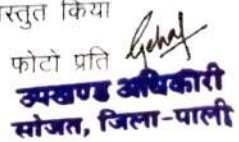 स्तुत किया
फोटो प्रति
उपखण्ड अधिकारी
सोजत, जिला-पाली